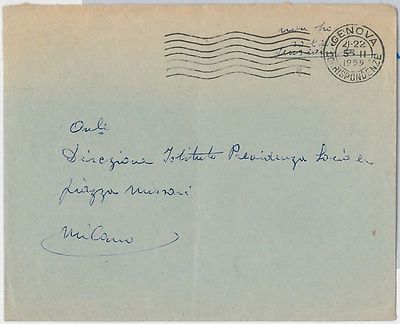 non ho
GENOVA
21-22
5 5 II
1955
CORRISPONDENZE
Onle
Direzione Istituto Previdenza Sociale
piazza Missori
Milano